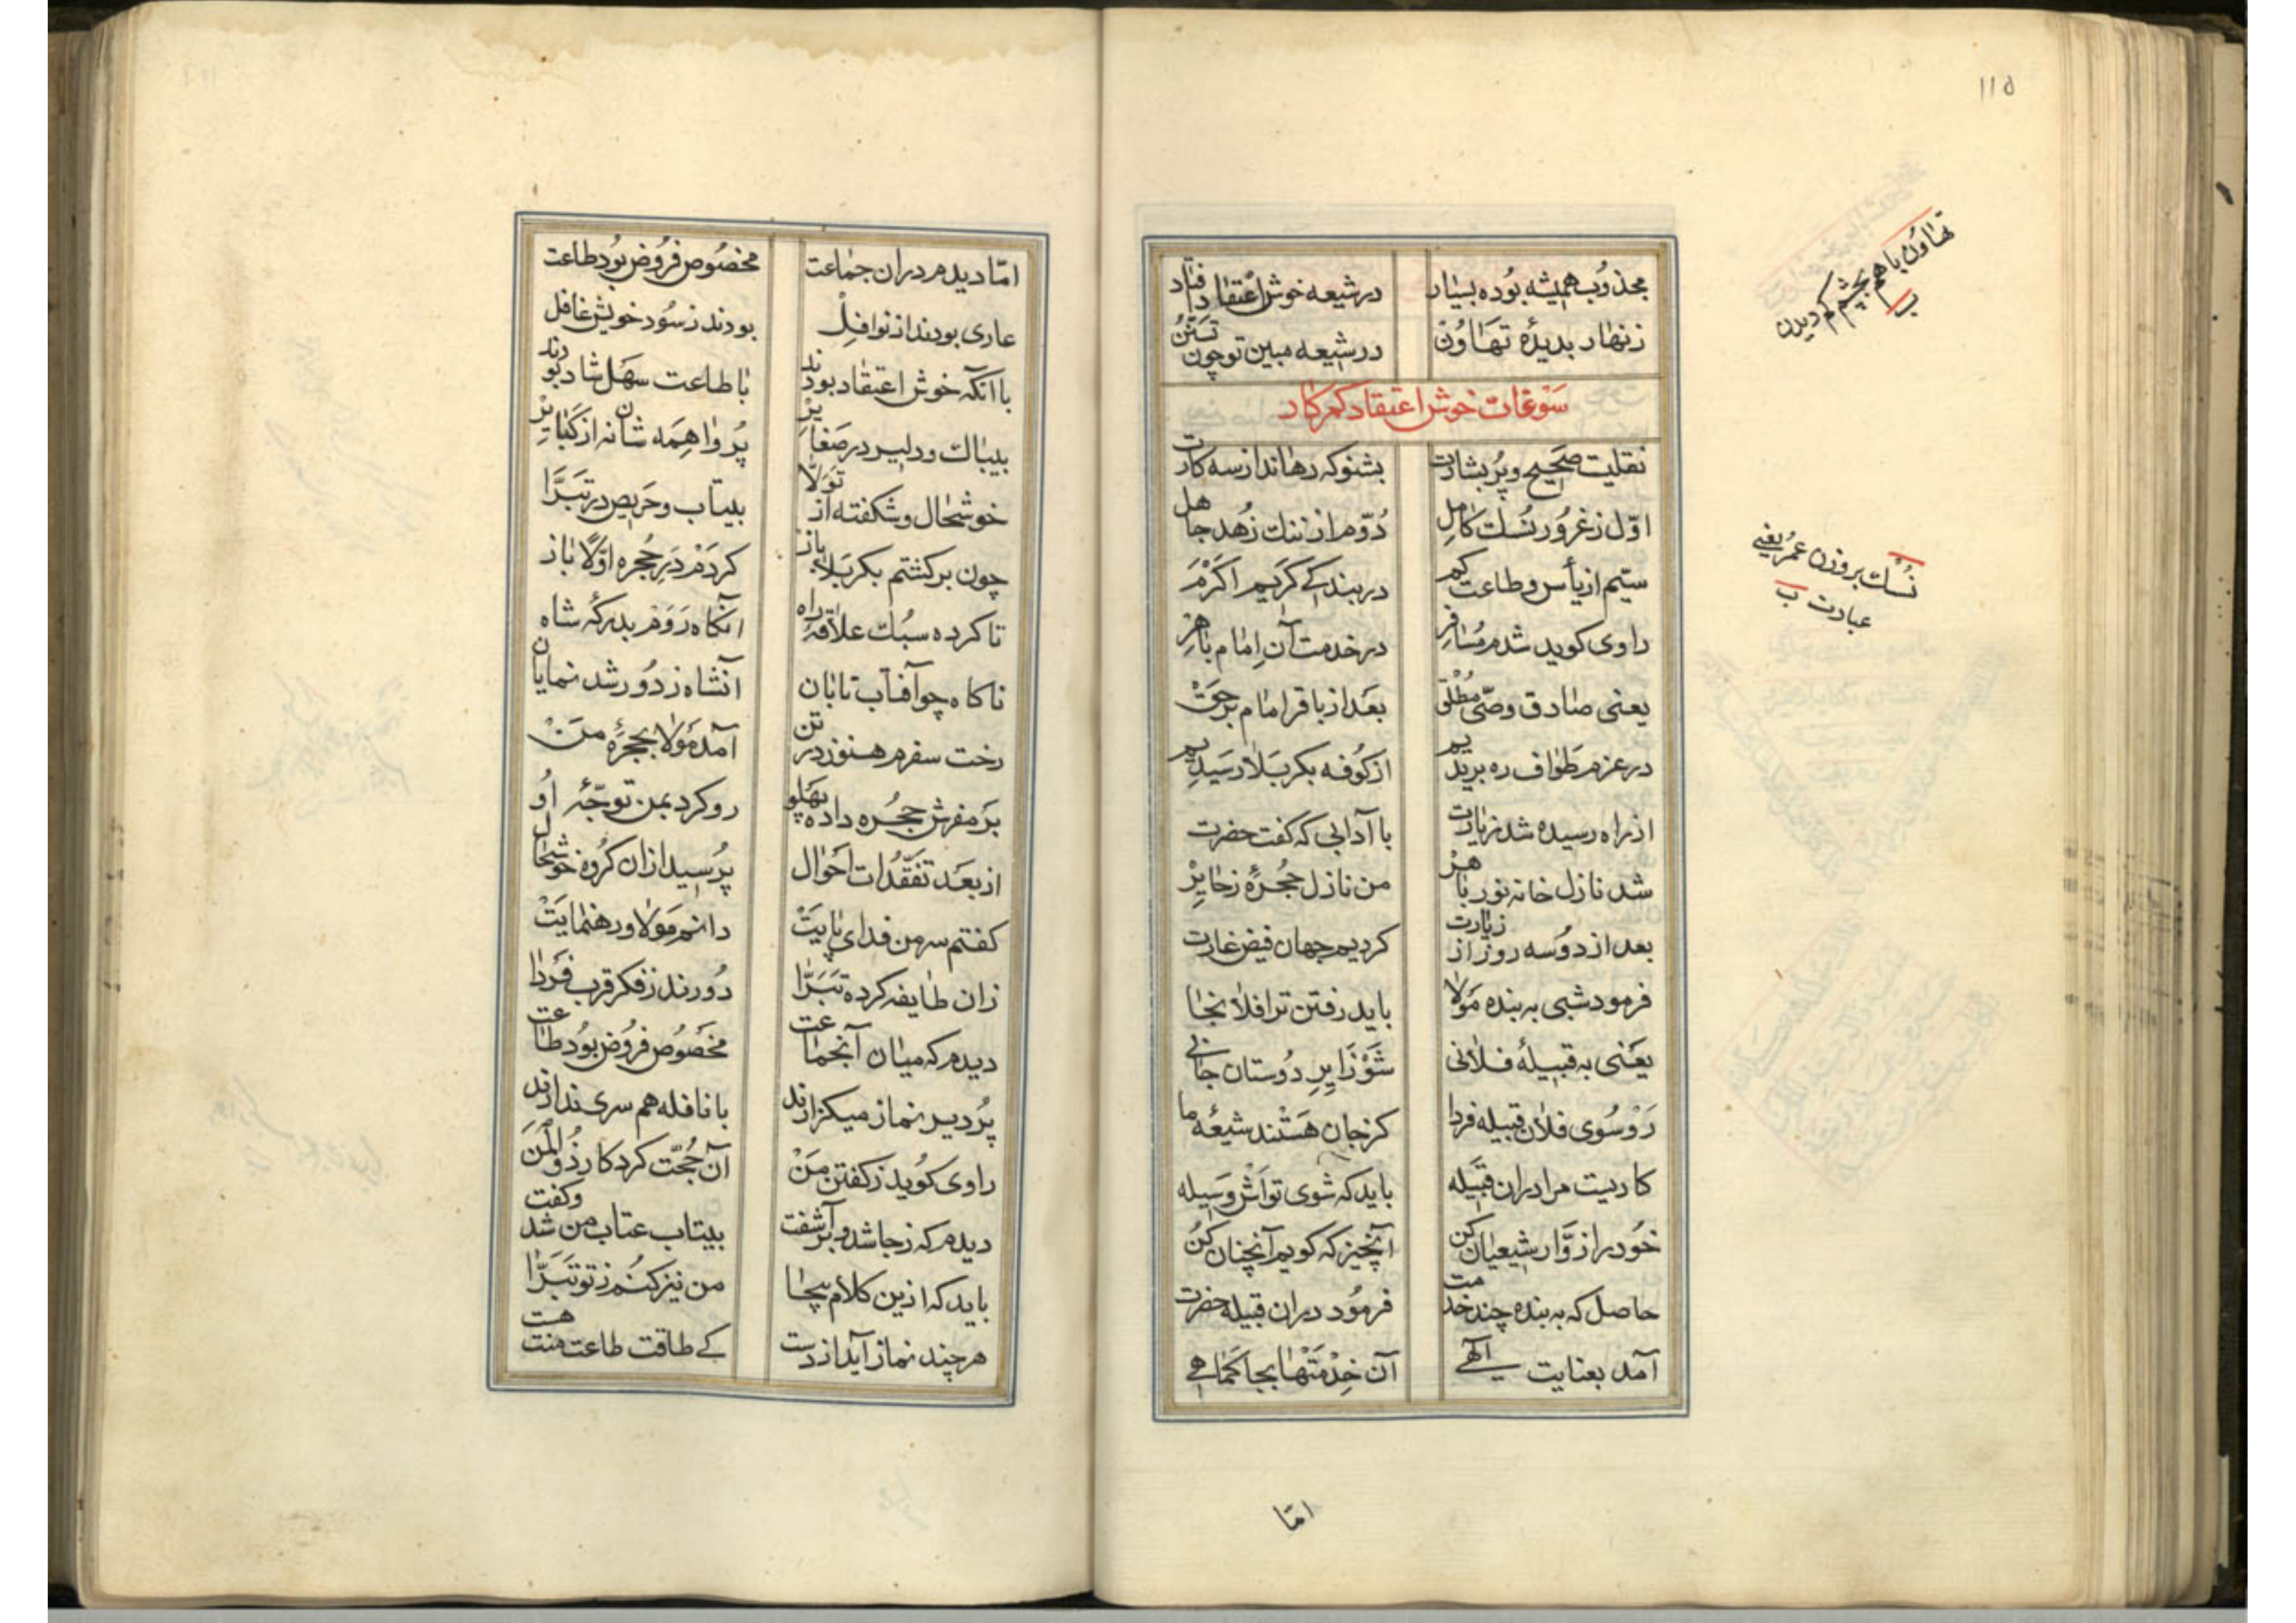 ۱۱۵
مجذوب همیشه بوده بسیار در شیعه خوش اعتقاد دافتاد
زنهار بدیدهٔ تهاون در شیعه مبین تو چون تسنن
سوغات خوش اعتقاد کم کار
نقلیت صحیح و پر بشارت بشنو که رهاند از سه کارت
اوّل ز غرور نسك کامل دوّم از ننك زهد جاهل
سیّم از یأس و طاعت کم در بندکے کریم اکرم
راوی کوید شدم مسافر در خدمت آن امام باهر
یعنی صادق وصیّ مطلق بعد از باقر امام بر حق
در عزم طواف ره بریدیم از کوفه بکربلا رسیدیم
از راه رسیده شد زیارت با آدابی که کفت حضرت
شد نازل خانه نور باهر من نازل حجرهٔ ز حایر
بعد از دو سه روز از زیارت کردیم جهان فیض غارت
فرمود شبی به بنده مولا باید رفتن ترا فلانجا
یعنی به قبیلهٔ فلانی شو زایر دوستان جانی
رو سوی فلان قبیله فردا کز جان هستند شیعهٔ ما
کاریست مرا دران قبیله باید که شوی تواش وسیله
خود را ز زوّار شیعیان کن آنچیز که کویم آنچنان کن
حاصل که به بنده چند خدمت فرمود دران قبیله حضرت
آمد بعنایت الٓهے آن خدمتها بجا کماهے
تهاون یا هم بچشم کم دیدن
ب
نسك بر وزن عمر یعنی
عبادت ب
امّا
امّا دیدم دران جماعت مخصوص فروض بود طاعت
عاری بودند از نوافل بودند ز سود خویش غافل
با انکه خوش اعتقاد بودند با طاعت سهل شاد بودند
بیباك و دلیر در صغایر پر واهمه شان نه از کبایر
خوشحال و شکفته از تولّا بیتاب و حریص در تبرّا
چون برکشتم بکربلا باز کردم در حجره اوّلا باز
تا کرده سبك علاقهٔ راه انکاه روم بدرکه شاه
ناکاه چو آفتاب تابان آنشاه ز دور شد نمایان
رخت سفرم هنوز در تن آمد مولا بحجرهٔ من
بر مفرش حجره داده پهلو رو کرد بمن توجّه او
از بعد تفقّدات احوال پرسید ازان کروه خوشحال
کفتم سر من فدای پایت دانم مولا و رهنمایت
زان طایفه کرده تبرّا دورند ز فکر قرب فردا
دیدم که میان آنجماعت مخصوص فروض بود طاعت
پر دیر نماز میکزارند با نافله هم سری ندارند
راوی کوید ز کفتن من آن حجّت کردکار ذو المن
دیدم که ز جا شد و برآشفت بیتاب عتاب من شد وکفت
باید که ازین کلام بیجا من نیز کنم ز تو تبرّا
هر چند نماز آید از دست کے طاقت طاعت منت هست